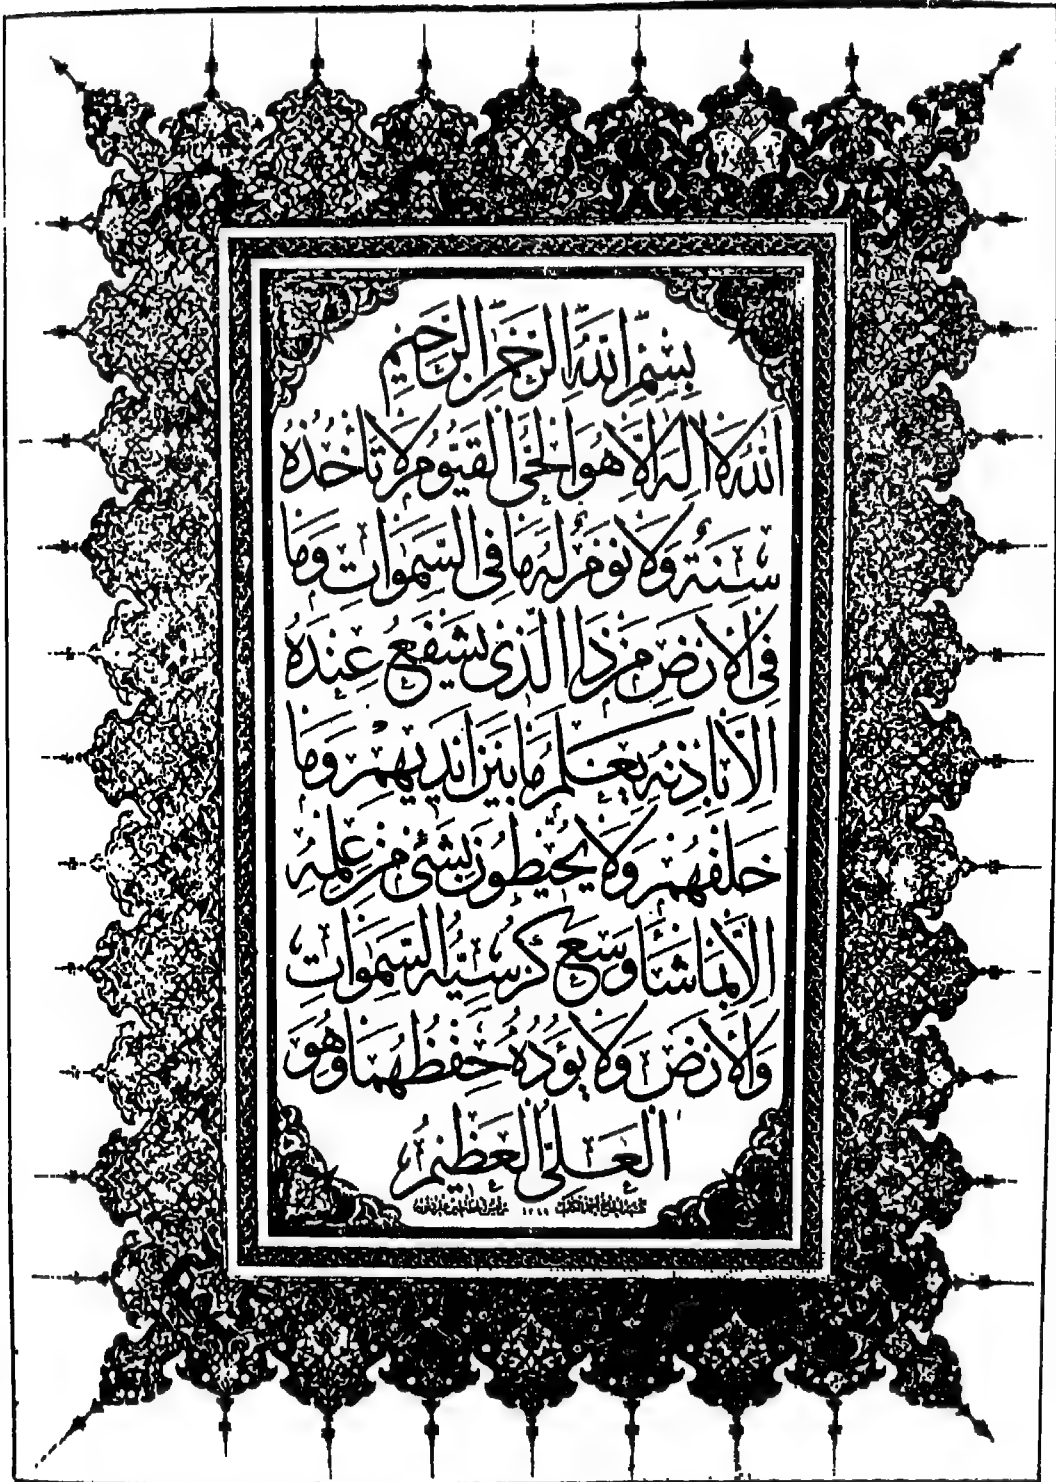 بِسْمِ اللَّهِ الرَّحْمَنِ الرَّحِيمِ
اَللّٰهُ لَا اِلٰهَ اِلَّا هُوَ الْحَىُّ الْقَيُّومُ لَا تَأْخُذُهُ
سِنَةٌ وَلَا نَوْمٌ لَهُ مَا فِى السَّمٰوَاتِ وَمَا
فِى الْاَرْضِ مَنْ ذَا الَّذِى يَشْفَعُ عِنْدَهُ
اِلَّا بِاِذْنِهِ يَعْلَمُ مَا بَيْنَ اَيْدِيهِمْ وَمَا
خَلْفَهُمْ وَلَا يُحِيطُونَ بِشَىْءٍ مِنْ عِلْمِهِ
اِلَّا بِمَا شَاءَ وَسِعَ كُرْسِيُّهُ السَّمٰوَاتِ
وَالْاَرْضَ وَلَا يَؤُدُهُ حِفْظُهُمَا وَهُوَ
الْعَلِىُّ الْعَظِيمُ